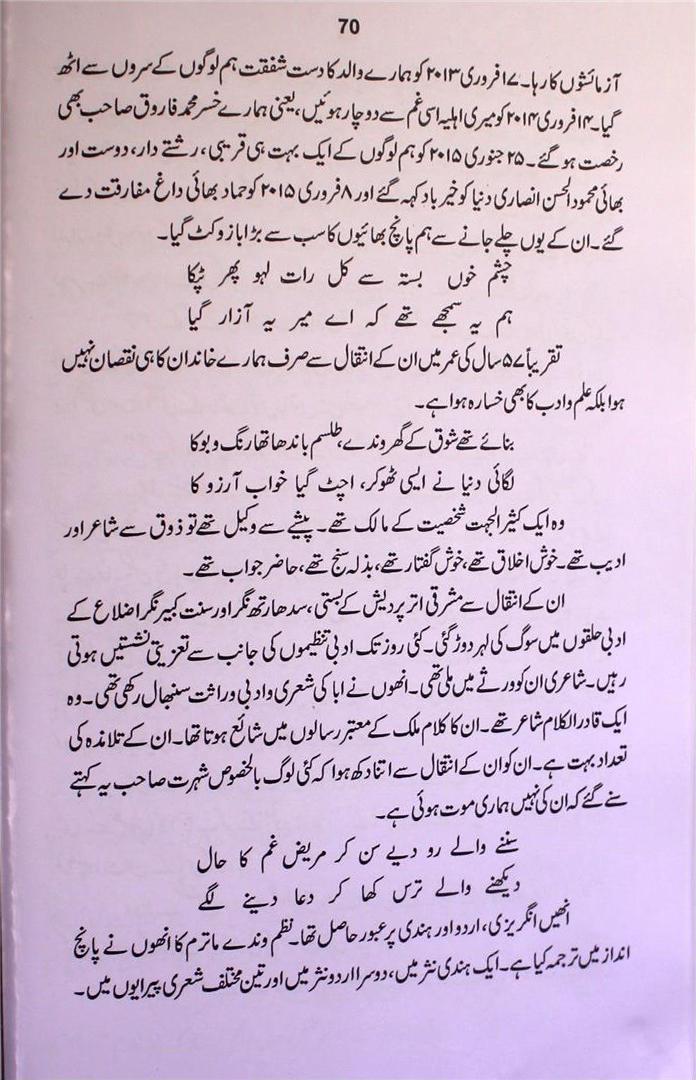 70
آزمائشوں کا رہا۔ ۱۷ فروری ۲۰۱۳ کو ہمارے والد کا دست شفقت ہم لوگوں کے سروں سے اٹھ
گیا۔ ۱۴ فروری ۲۰۱۴ کو میری اہلیہ اسی غم سے دوچار ہوئیں، یعنی ہمارے خسر محمد فاروق صاحب بھی
رخصت ہو گئے۔ ۲۵ جنوری ۲۰۱۵ کو ہم لوگوں کے ایک بہت ہی قریبی، رشتے دار، دوست اور
بھائی محمود الحسن انصاری دنیا کو خیر باد کہہ گئے اور ۸ فروری ۲۰۱۵ کو حماد بھائی داغ مفارقت دے
گئے۔ ان کے یوں چلے جانے سے ہم پانچ بھائیوں کا سب سے بڑا بازو کٹ گیا۔
چشم خوں بستہ سے کل رات لہو پھر ٹپکا
ہم یہ سمجھے تھے کہ اے میر یہ آزار گیا
تقریباً ۵۷ سال کی عمر میں ان کے انتقال سے صرف ہمارے خاندان کا ہی نقصان نہیں
ہوا بلکہ علم و ادب کا بھی خسارہ ہوا ہے۔
بنائے تھے شوق کے گھروندے، طلسم باندھا تھا رنگ و بو کا
لگائی دنیا نے ایسی ٹھوکر، اچٹ گیا خواب آرزو کا
وہ ایک کثیر الجہت شخصیت کے مالک تھے۔ پیشے سے وکیل تھے تو ذوق سے شاعر اور
ادیب تھے۔ خوش اخلاق تھے، خوش گفتار تھے، بذلہ سنج تھے، حاضر جواب تھے۔
ان کے انتقال سے مشرقی اتر پردیش کے بستی، سدھارتھ نگر اور سنت کبیر نگر اضلاع کے
ادبی حلقوں میں سوگ کی لہر دوڑ گئی۔ کئی روز تک ادبی تنظیموں کی جانب سے تعزیتی نشستیں ہوتی
رہیں۔ شاعری ان کو ورثے میں ملی تھی۔ انھوں نے ابا کی شعری و ادبی وراثت سنبھال رکھی تھی۔ وہ
ایک قادر الکلام شاعر تھے۔ ان کا کلام ملک کے معتبر رسالوں میں شائع ہوتا تھا۔ ان کے تلامذہ کی
تعداد بہت ہے۔ ان کو ان کے انتقال سے اتنا دکھ ہوا کہ کئی لوگ بالخصوص شہرت صاحب یہ کہتے
سنے گئے کہ ان کی نہیں ہماری موت ہوئی ہے۔
سننے والے رو دیے سن کر مریض غم کا حال
دیکھنے والے ترس کھا کر دعا دینے لگے
انھیں انگریزی، اردو اور ہندی پر عبور حاصل تھا۔ نظم وندے ماترم کا انھوں نے پانچ
انداز میں ترجمہ کیا ہے۔ ایک ہندی نثر میں، دوسرا اردو نثر میں اور تین مختلف شعری پیرایوں میں۔